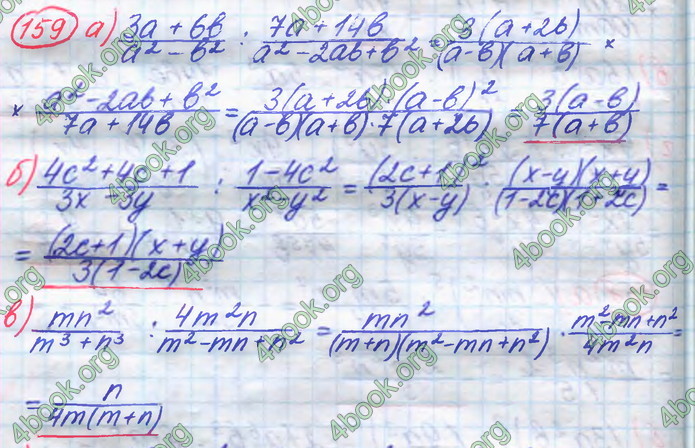 159 а) (3a + 6b)/(a² - b²) : (7a + 14b)/(a² - 2ab + b²) = 3(a + 2b)/((a-b)(a+b)) ×
× (a² - 2ab + b²)/(7a + 14b) = 3(a + 2b)·(a-b)²/((a-b)(a+b)·7(a+2b)) = 3(a-b)/(7(a+b))
б) (4c² + 4c + 1)/(3x - 3y) : (1 - 4c²)/(x² - y²) = (2c+1)²/(3(x-y)) · (x-y)(x+y)/((1-2c)(1+2c)) =
= (2c+1)(x+y)/(3(1-2c))
в) mn²/(m³ + n³) : 4m²n/(m² - mn + n²) = mn²/((m+n)(m² - mn + n²)) · (m² - mn + n²)/(4m²n) =
= n/(4m(m+n))
4book.org